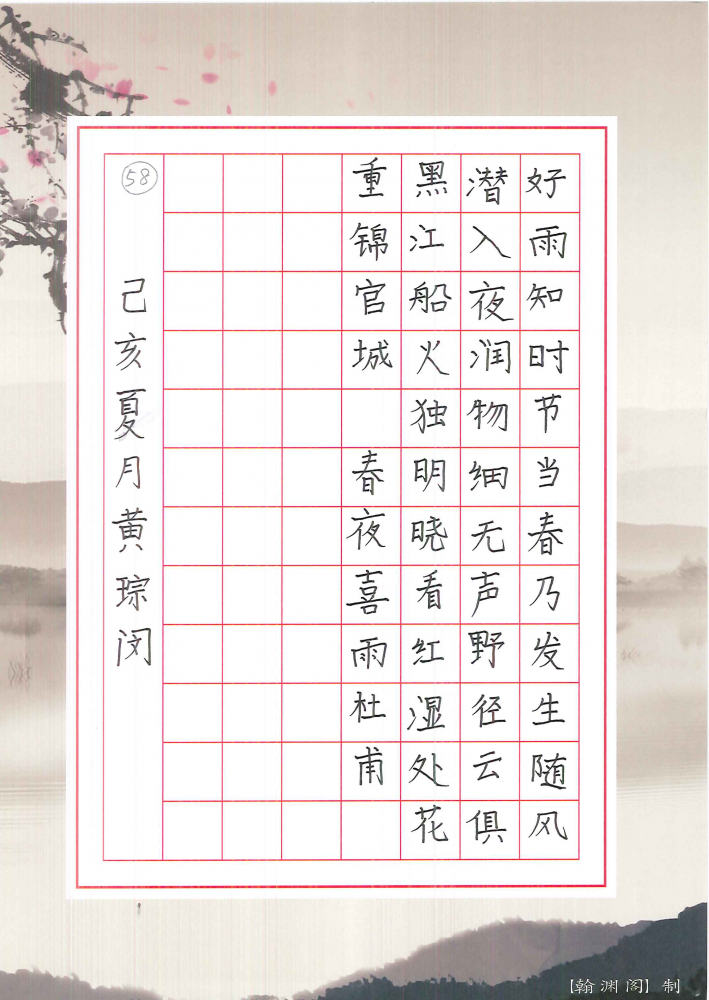 好雨知时节当春乃发生随风
潜入夜润物细无声野径云俱
黑江船火独明晓看红湿处花
重锦官城 春夜喜雨杜甫
己亥夏月黄琮闵
58
【翰渊阁】制